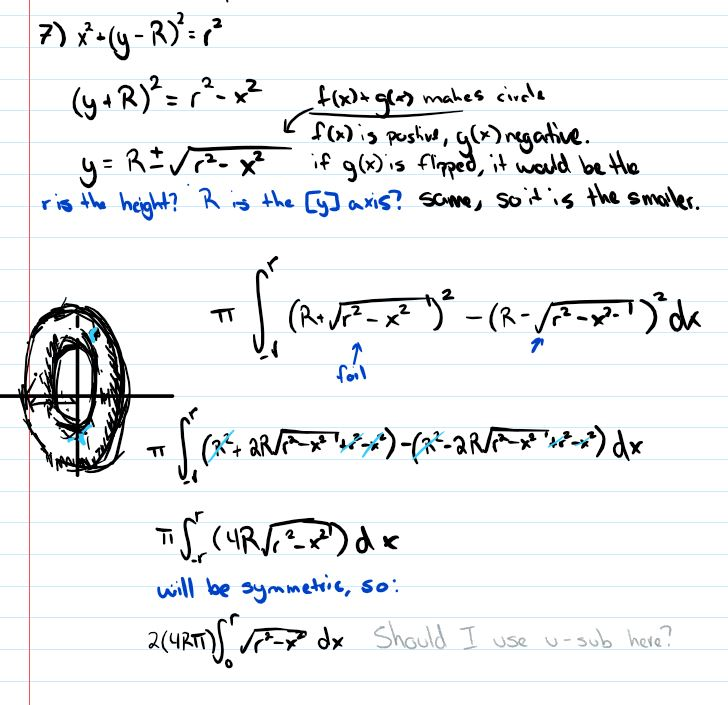 7) x² + (y - R)² = r²
(y + R)² = r² - x²
f(x) + g(x) makes circle
y = R ± √(r² - x²)
f(x) is postive, g(x) negative.
if g(x) is flipped, it would be the
same, so it is the smaller.
r is the height? R is the [y] axis?
π ∫_{-r}^{r} (R + √(r² - x²))² - (R - √(r² - x²))² dx
foil
π ∫_{-r}^{r} (R² + 2R√(r² - x²) + r² - x²) - (R² - 2R√(r² - x²) + r² - x²) dx
π ∫_{-r}^{r} (4R√(r² - x²)) dx
will be symmetric, so:
2(4Rπ) ∫_{0}^{r} √(r² - x²) dx Should I use u-sub here?